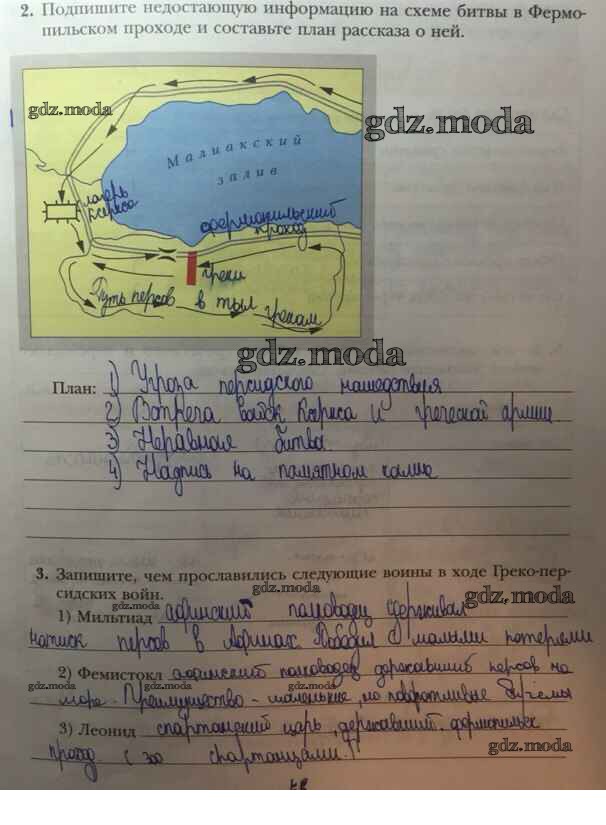 2. Подпишите недостающую информацию на схеме битвы в Фермо-
пильском проходе и составьте план рассказа о ней.
gdz.moda
gdz.moda
Малиакский
залив
лагерь
Ксеркса
фермопильский
проход
греки
Путь персов в тыл грекам
gdz.moda
План: 1) Угроза персидского нашествия
2) Встреча войск Ксеркса и греческой армии
3) Неравная битва.
4) Надпись на памятном камне
3. Запишите, чем прославились следующие воины в ходе Греко-пер-
сидских войн.
gdz.moda
gdz.moda
1) Мильтиад афинский полководец сдерживал
натиск персов в Афинах. Победил с малыми потерями
gdz.moda
2) Фемистокл афинский полководец державший персов на
gdz.moda gdz.moda gdz.moda
море. Преимущество - маленькие, но поворотливые
3) Леонид спартанский царь, державший
проход с 300 спартанцами.
gdz.moda